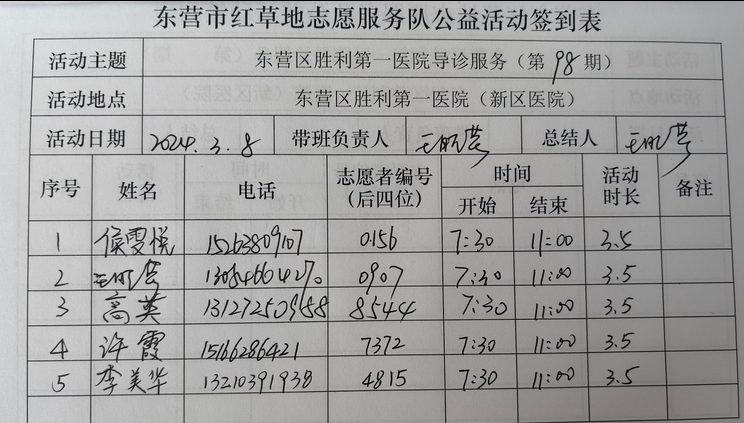 东营市红草地志愿服务队公益活动签到表
活动主题 东营区胜利第一医院导诊服务（第98期）
活动地点 东营区胜利第一医院（新区医院）
活动日期 2024.3.8 带班负责人 总结人
序号 姓名 电话 志愿者编号（后四位） 时间 开始 结束 活动时长 备注
1 侯雯悦 15263809107 0156 7:30 11:00 3.5
2 0907 7:30 11:00 3.5
3 高英 8544 7:30 11:00 3.5
4 许霞 15166286421 7372 7:30 11:00 3.5
5 李美华 13210391938 4815 7:30 11:00 3.5